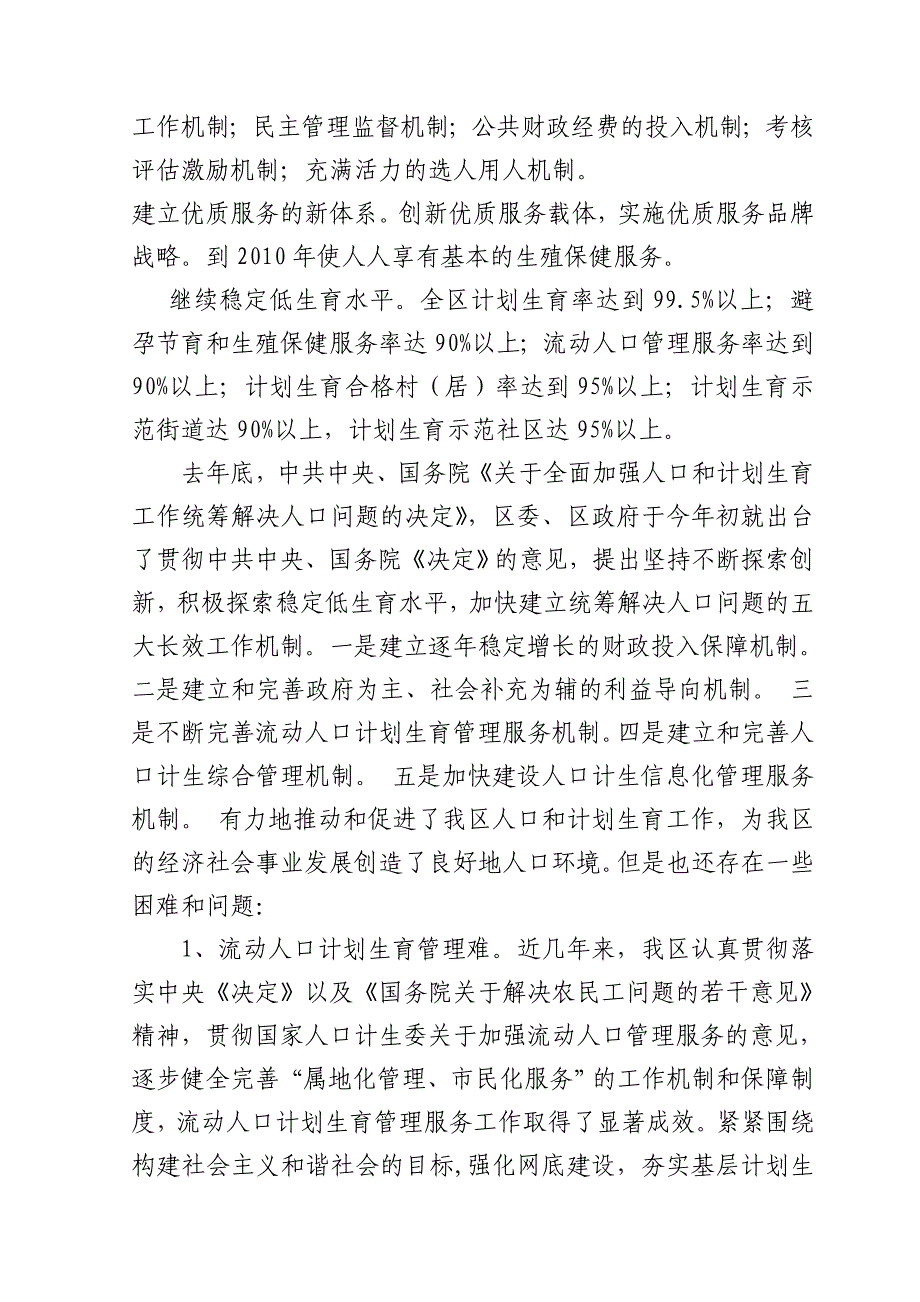 工作机制；民主管理监督机制；公共财政经费的投入机制；考核
评估激励机制；充满活力的选人用人机制。
建立优质服务的新体系。创新优质服务载体，实施优质服务品牌
战略。到 2010 年使人人享有基本的生殖保健服务。
继续稳定低生育水平。全区计划生育率达到 99.5%以上；避
孕节育和生殖保健服务率达 90%以上；流动人口管理服务率达到
90%以上；计划生育合格村（居）率达到 95%以上；计划生育示
范街道达 90%以上，计划生育示范社区达 95%以上。
去年底，中共中央、国务院《关于全面加强人口和计划生育
工作统筹解决人口问题的决定》，区委、区政府于今年初就出台
了贯彻中共中央、国务院《决定》的意见，提出坚持不断探索创
新，积极探索稳定低生育水平，加快建立统筹解决人口问题的五
大长效工作机制。一是建立逐年稳定增长的财政投入保障机制。
二是建立和完善政府为主、社会补充为辅的利益导向机制。 三
是不断完善流动人口计划生育管理服务机制。四是建立和完善人
口计生综合管理机制。 五是加快建设人口计生信息化管理服务
机制。 有力地推动和促进了我区人口和计划生育工作，为我区
的经济社会事业发展创造了良好地人口环境。但是也还存在一些
困难和问题：
1、流动人口计划生育管理难。近几年来，我区认真贯彻落
实中央《决定》以及《国务院关于解决农民工问题的若干意见》
精神，贯彻国家人口计生委关于加强流动人口管理服务的意见，
逐步健全完善“属地化管理、市民化服务”的工作机制和保障制
度，流动人口计划生育管理服务工作取得了显著成效。紧紧围绕
构建社会主义和谐社会的目标,强化网底建设，夯实基层计划生